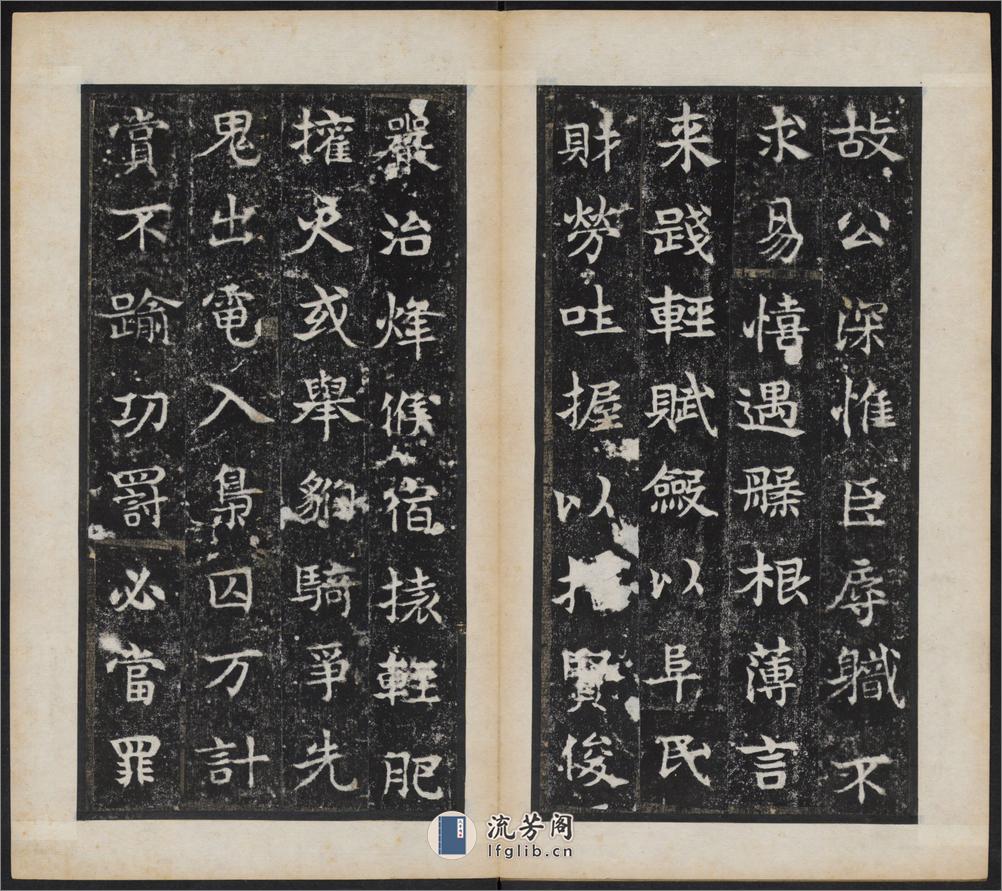 故公深惟臣辱職不
求易憘遇槹根薄言
来踐輕賦斂以阜民
財勞吐握以招賢俊
嚴治烽候宿援輕肥
擁天或舉貂騎爭先
鬼出電入梟囚万計
賞不踰功罰必當罪
流芳阁
lfglib.cn